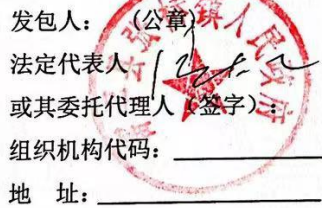 发包人： （公章）
法定代表人
或其委托代理人（签字）：
组织机构代码：
地 址：
镇人民政府